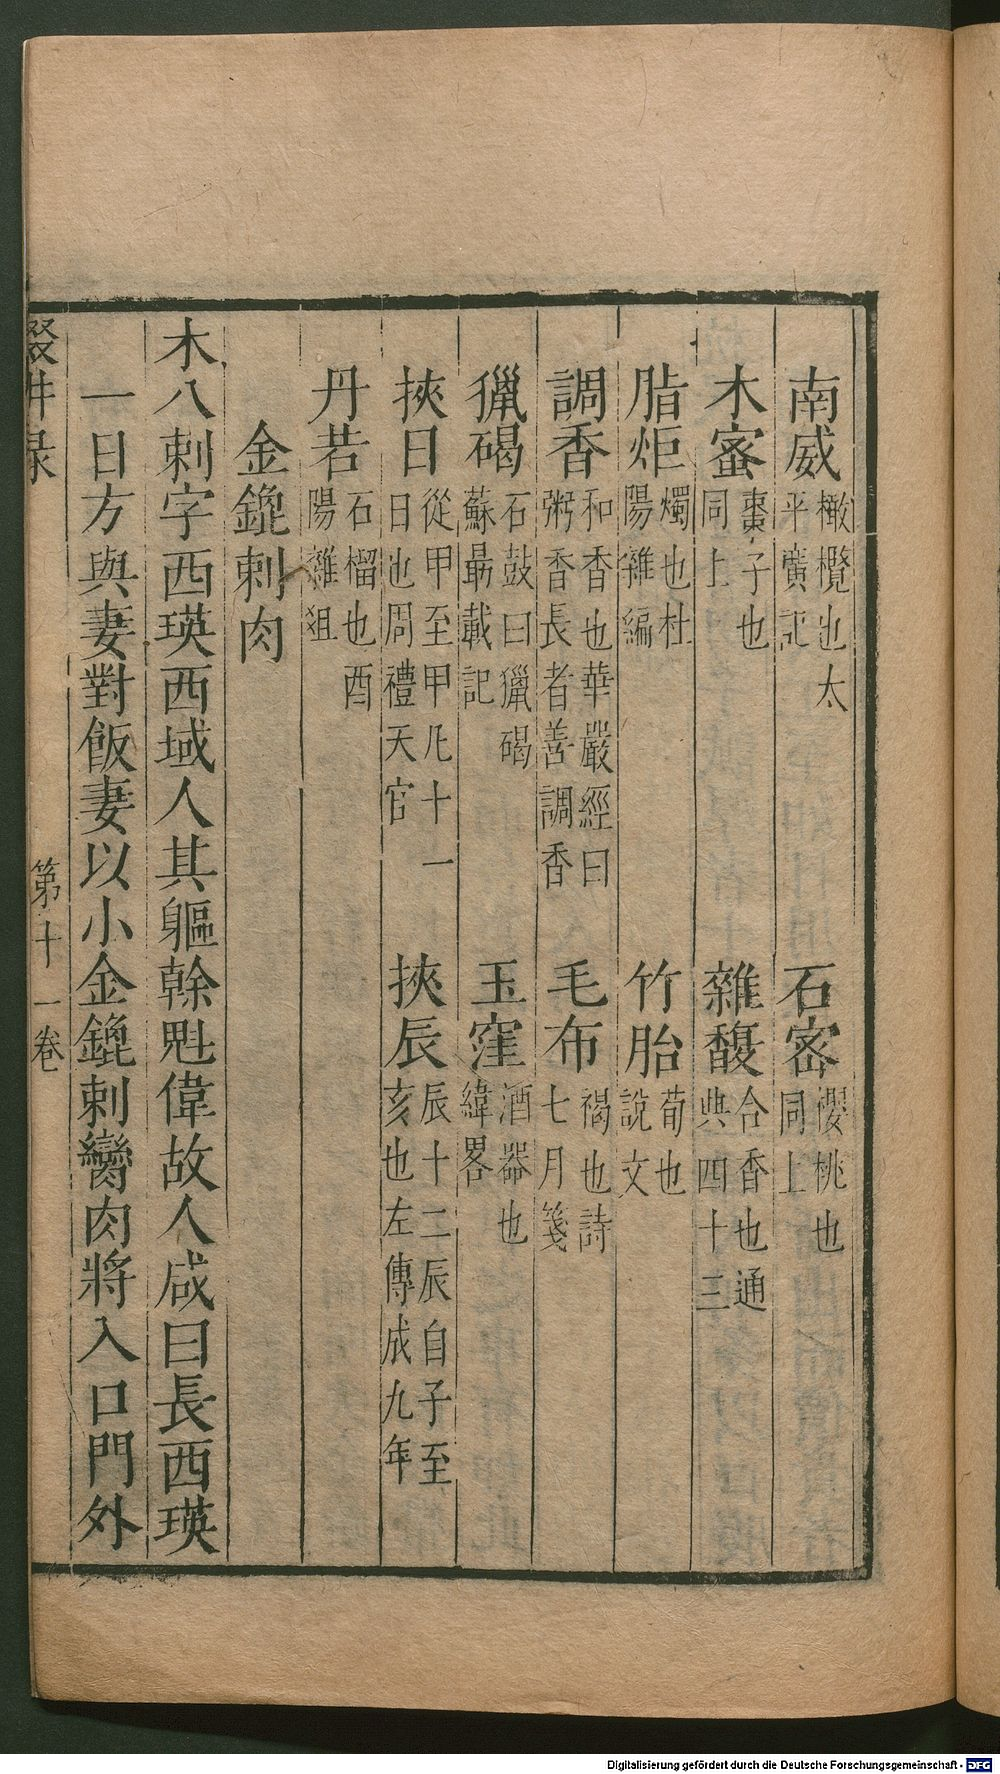 南威 橄欖也太平廣記 石蜜 櫻桃也同上
木蜜 棗子也同上 雜馥 合香也通典四十三
脂炬 燭也杜陽雜編 竹胎 荀也說文
調香 和香也華嚴經曰粥香長者善調香 毛布 褐也詩七月箋
獵碣 石鼓曰獵碣蘇勗載記 玉窪 酒器也緯畧
挾日 從甲至甲凡十一日也周禮天官 挾辰 辰十二辰自子至亥也左傳成九年
丹若 石榴也酉陽雜俎
金鎞剌肉
木八剌字西瑛西域人其軀幹魁偉故人咸曰長西瑛
一日方與妻對飯妻以小金鎞剌臠肉將入口門外
輟畊录 第十一卷
Digitalisierung gefördert durch die Deutsche Forschungsgemeinschaft - DFG